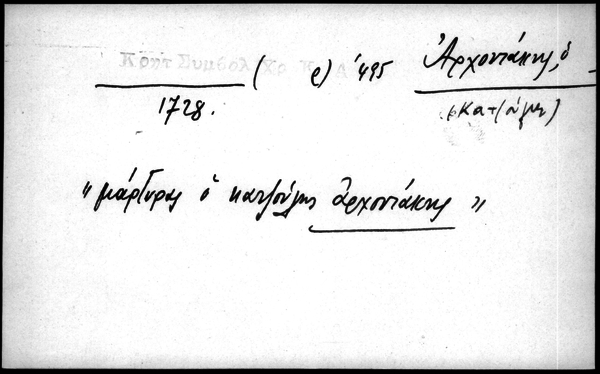 Κρητ Συμβολ. Χρ. Κ. Δ.
( ε) '495 Ἀρχοντάκης, ὁ
1728. (Κατζούλης)
"μάρτυρας ὁ κατζούλης ἀρχοντάκης"